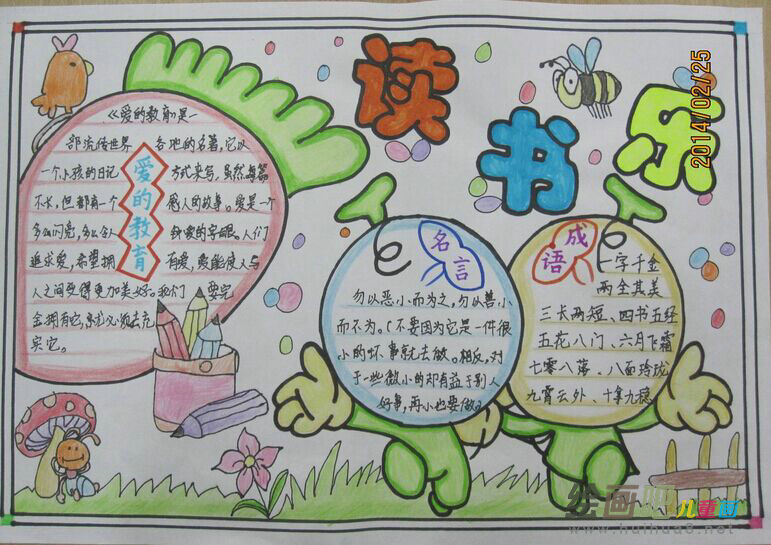 读书乐
2014/02/25
《爱的教育》是一
部流传世界 各地的名著,它以
一个小孩的日记 方式来写,虽然每篇
不长,但都有一个 感人的故事。爱是一个
多么闪亮,多么令人
追求爱,希望拥 有爱,爱能使人与
人之间变得更加美好。我们 要完
实它。
爱的教育
名言
勿以恶小而为之,勿以善小
而不为。(不要因为它是一件很
小的坏事就去做。相反,对
于一些微小的却有益于别人
好事,再小也要做。)
成语
一字千金
两全其美
三长两短、四书五经
五花八门、六月飞霜
七零八落、八面玲珑
九霄云外、十拿九稳
绘画吧儿童画
www.huihua8.net